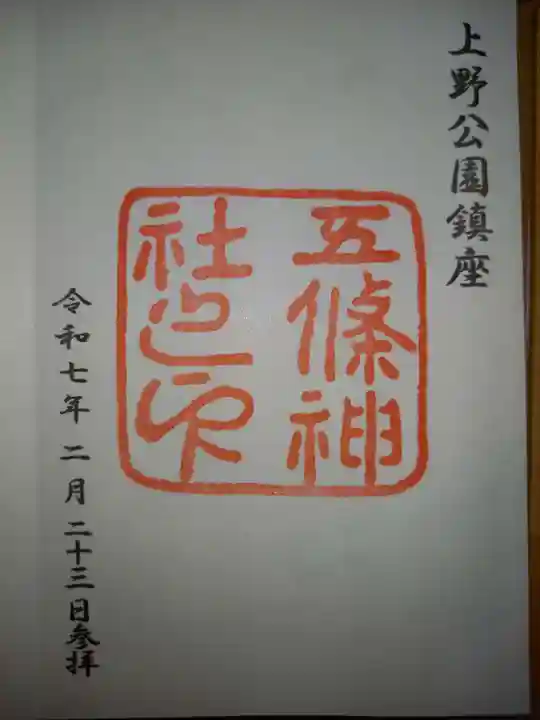 上野公園鎮座
五條神
社之印
令和七年二月二十三日参拝